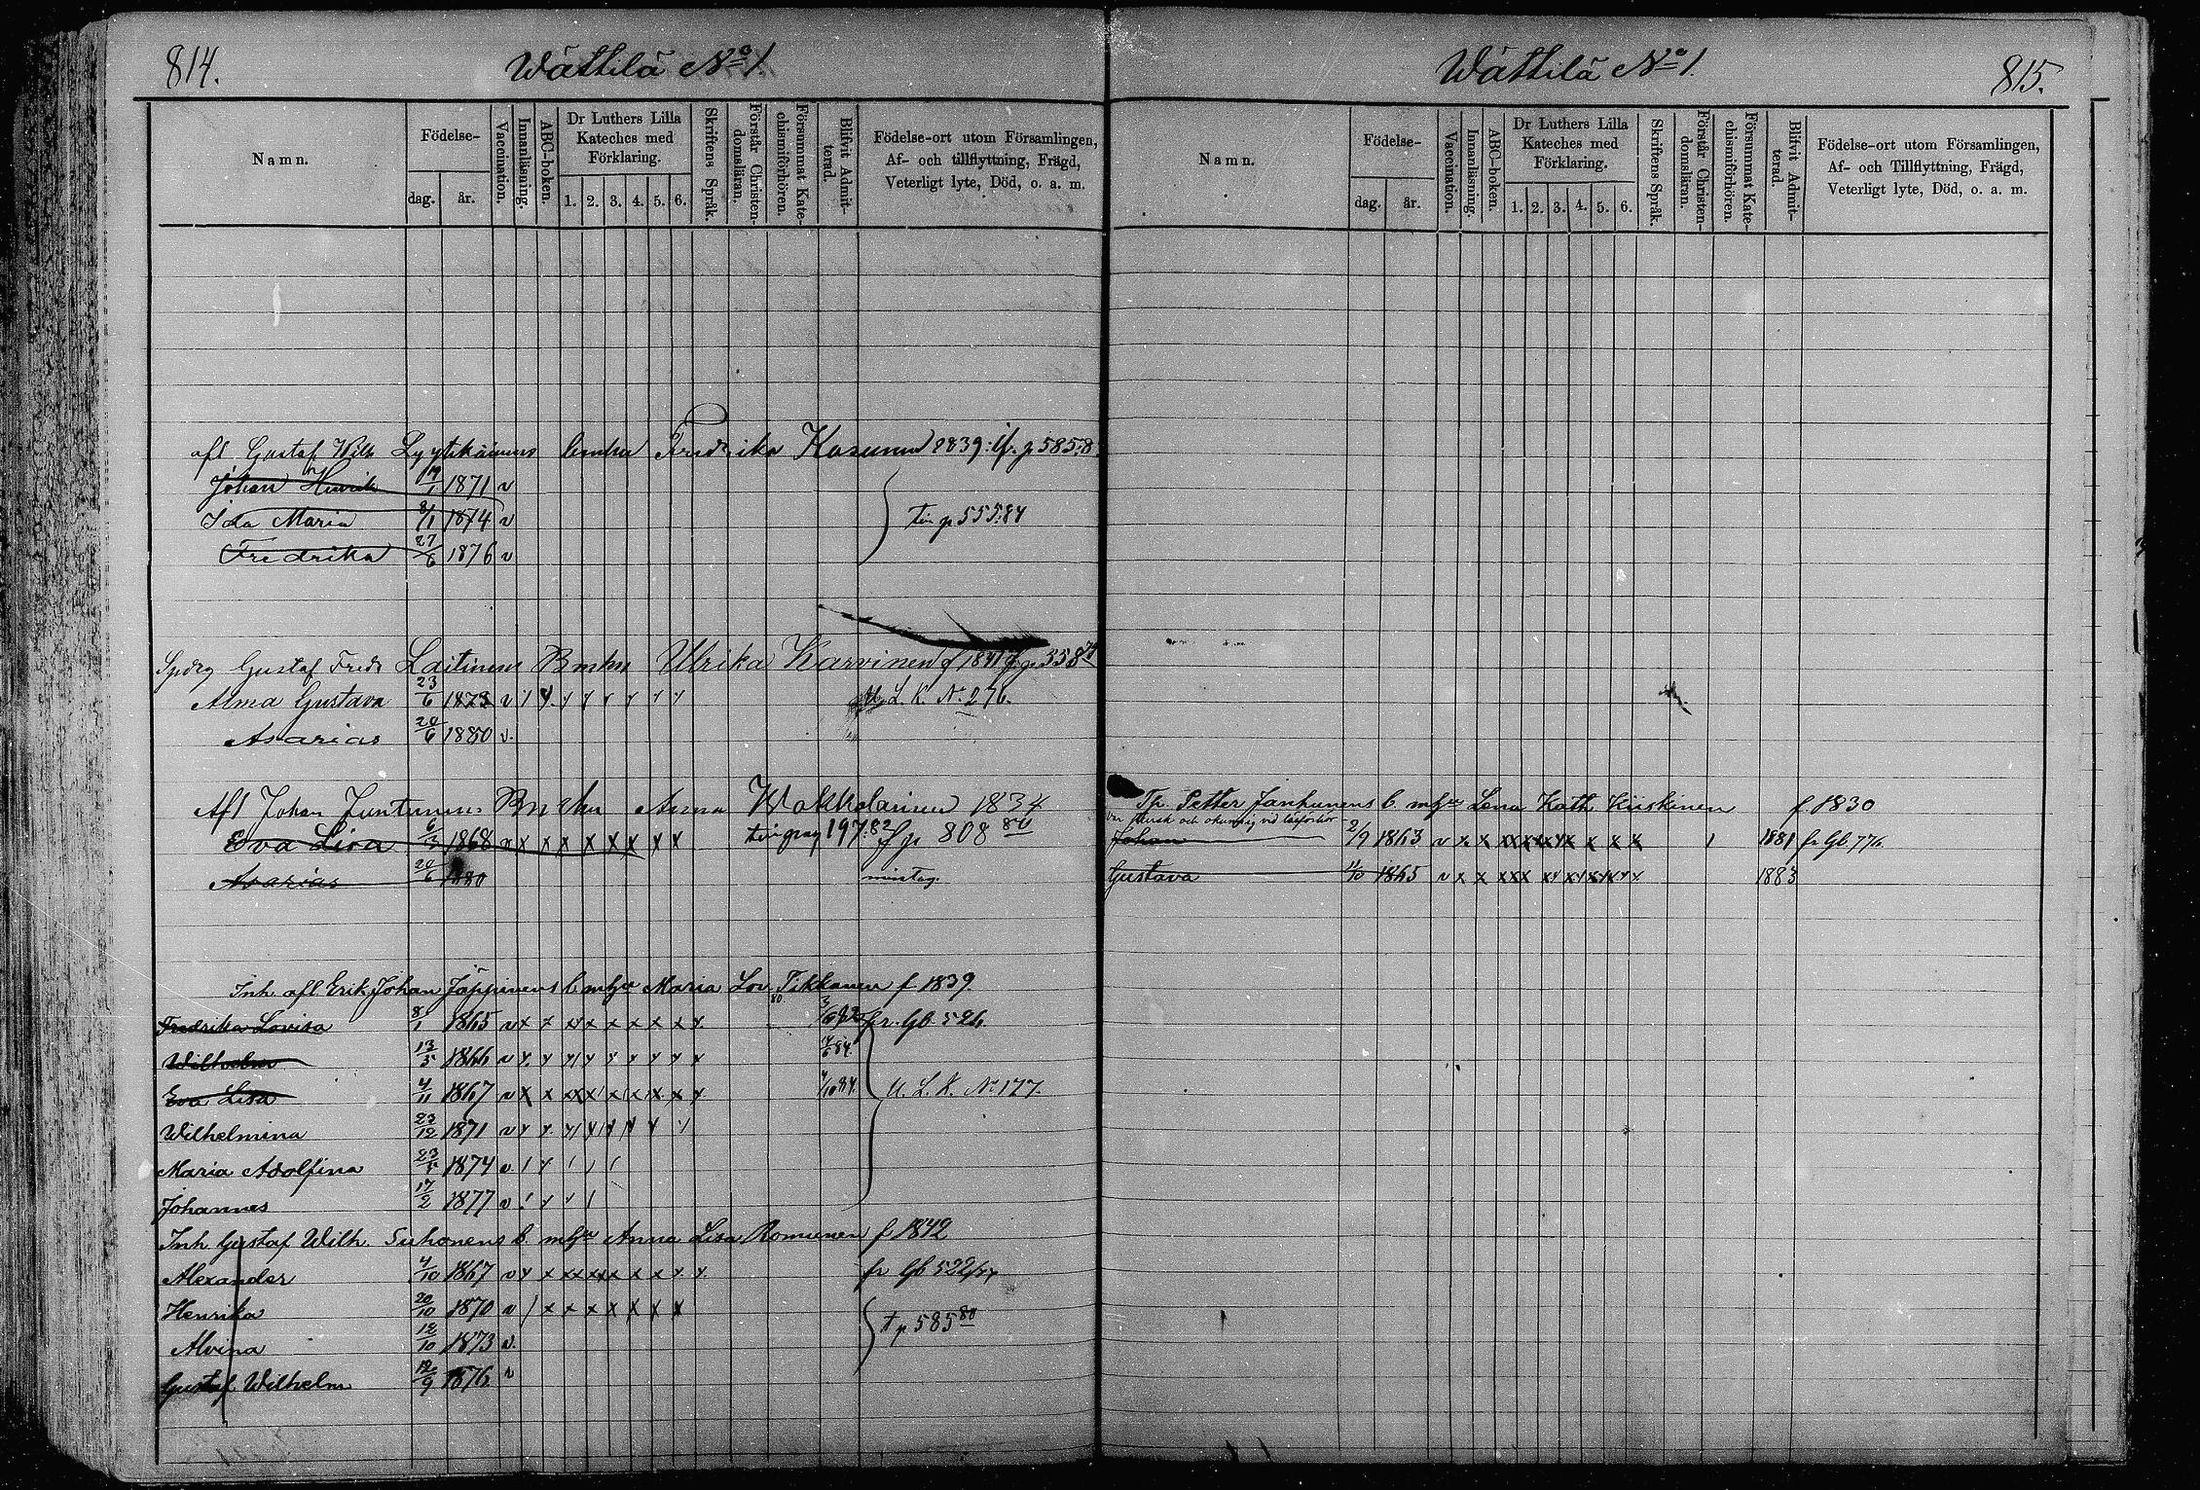 814.
Wättilä No 1.
Namn.
Födelse-
dag.
år.
Vaccination.
Innanläsning.
ABC-boken.
Dr Luthers Lilla
Kateches med
Förklaring.
1. 2. 3. 4. 5. 6.
Skriftens Språk.
Förstår Christen-
domsläran.
Försummat Kate-
chismiförhören.
Blifvit Admit-
terad.
Födelse-ort utom Församlingen,
Af- och tillflyttning, Frägd,
Veterligt lyte, Död, o. a. m.
afl Gustaf Wilh Lyytikäinens Fredrika Kasurinen 1839 p 585
Johan Henrik 1871 v
Ida Maria 8/1 1874 v p 555:84
Fredrika 27/6 1876 v
Gustaf Fredr Laitinens Ulrika Karvinen f 1841 p 358
Alma Gustava 23/6 1873 v L. K. No 276.
Asarias 20/6 1880 v.
Afl Johan Juntunens Anna 1834
Eva Lisa 1868 v x x x x x x x x 197:82 fr p 808
Asarias 20/6 1880 misstag.
Inh afl Erik Johan Jäppinens b. mhjon Maria Lov. Tikkanen f 1839.
Fredrika Lovisa 8/1 1865 v x x x x x x x x x fr. Gb 526.
Wilhelm 13/5 1866 v
Eva Lisa 4/11 1867 v x x U. L. K. No 177.
Wilhelmina 23/12 1871 v
Maria Adolfina 23/5 1874 v
Johannes 17/2 1877 v
Inh Gustaf Wilh. Suhonens b. Anna Lisa Romunen f 1842
Alexander 4/10 1867 v fr Gb 522
Henrika 20/10 1870 v / x x x x x x x t p 585 80
Alvina 12/10 1873 v.
Gustaf Wilhelm 12/9 1876 v
Wättilä No 1.
815.
Namn.
Födelse-
dag.
år.
Vaccination.
Innanläsning.
ABC-boken.
Dr Luthers Lilla
Kateches med
Förklaring.
1. 2. 3. 4. 5. 6.
Skriftens Språk.
Förstår Christen-
domsläran.
Försummat Kate-
chismiförhören.
Blifvit Admit-
terad.
Födelse-ort utom Församlingen,
Af- och Tillflyttning, Frägd,
Veterligt lyte, Död, o. a. m.
Petter Janhunens b. Lena Kath. Kiiskinen f 1830
Johan 2/9 1863 v 1 1881 fr Gb. 776
Gustava 1865 v 1883